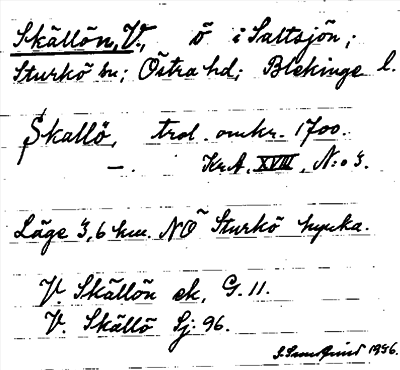 Skällön, V., ö i Saltsjön;
Sturkö sn; Östra hd; Blekinge l.
Skallö, trol. omkr. 1700.
—. KrA, XVIII, N:o 3.
Läge 3,6 km. NO Sturkö kyrka.
V. Skällön ek, G. 11.
V. Skällö Sj: 96.
S. Sundquist 1956.